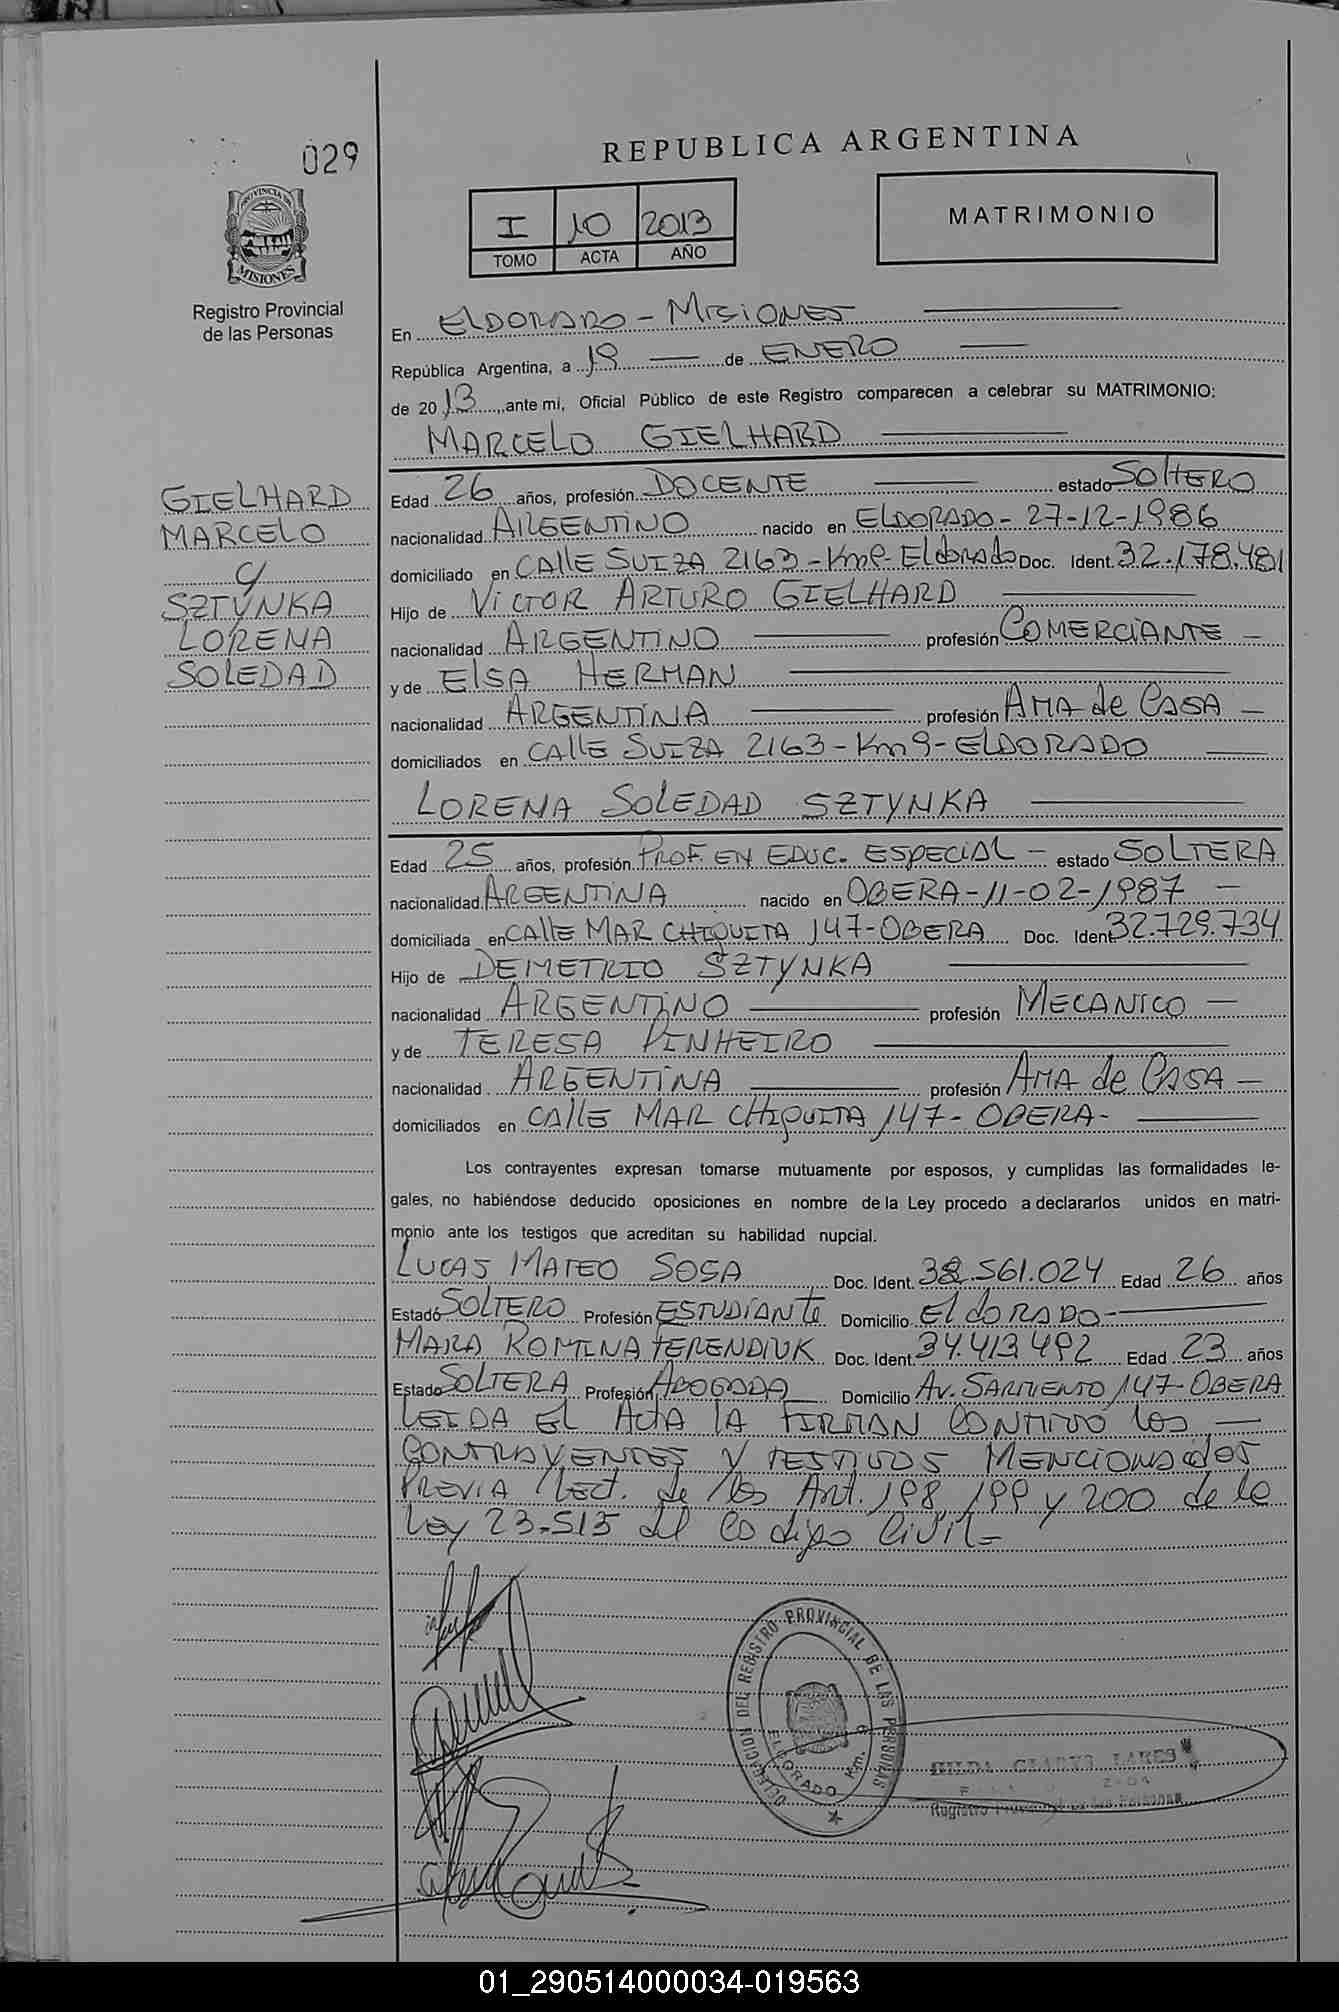 029
REPUBLICA ARGENTINA
I 10 2013
TOMO ACTA AÑO
MATRIMONIO
PROVINCIA DE
MISIONES
Registro Provincial
de las Personas
En ELDORADO - MISIONES
República Argentina, a 19 de ENERO
de 2013, ante mi, Oficial Público de este Registro comparecen a celebrar su MATRIMONIO:
MARCELO GIELHARD
GIELHARD
MARCELO
C/
SZTYNKA
LORENA
SOLEDAD
Edad 26 años, profesión DOCENTE estado SOLTERO
nacionalidad ARGENTINO nacido en ELDORADO - 27-12-1986
domiciliado en CALLE SUIZA 2163 - Km9 - ELdORADO Doc. Ident. 32.178.481
Hijo de VICTOR ARTURO GIELHARD
nacionalidad ARGENTINO profesión COMERCIANTE -
y de ELSA HERMAN
nacionalidad ARGENTINA profesión AMA de CASA -
domiciliados en CALLE SUIZA 2163 - Km9 - ELDORADO
LORENA SOLEDAD SZTYNKA
Edad 25 años, profesión PROF. EN EDUC. ESPECIAL - estado SOLTERA
nacionalidad ARGENTINA nacido en OBERA - 11-02-1987 -
domiciliada en CALLE MAR CHIQUITA 147 - OBERA Doc. Ident. 32.729.734
Hijo de DEMETRIO SZTYNKA
nacionalidad ARGENTINO profesión MECANICO -
y de TERESA PINHEIRO
nacionalidad ARGENTINA profesión AMA de CASA -
domiciliados en CALLE MAR CHIQUITA 147 - OBERA -
Los contrayentes expresan tomarse mutuamente por esposos, y cumplidas las formalidades le-
gales, no habiéndose deducido oposiciones en nombre de la Ley procedo a declararlos unidos en matri-
monio ante los testigos que acreditan su habilidad nupcial.
LUCAS MATEO SOSA Doc. Ident. 32.561.024 Edad 26 años
Estado SOLTERO Profesión ESTUDIANTE Domicilio ELdORADO -
MARA ROMINA FERENDIUK Doc. Ident. 34.413.492 Edad 23 años
Estado SOLTERA Profesión ABOGADA Domicilio Av. SARMIENTO 147 - OBERA
LEIDA EL ACTA LA FIRMAN CONMIGO LOS -
CONTRAYENTES Y TESTIGOS MENCIONADOS
PREVIA Lect. de los Art. 198, 199 y 200 de la
Ley 23.515 del Codigo Civil -
DELEGACION DEL REGISTRO PROVINCIAL DE LAS PERSONAS
ELDORADO Km. 9
HILDA GLADYS LARES
Registro Provincial de las Personas
01_290514000034-019563